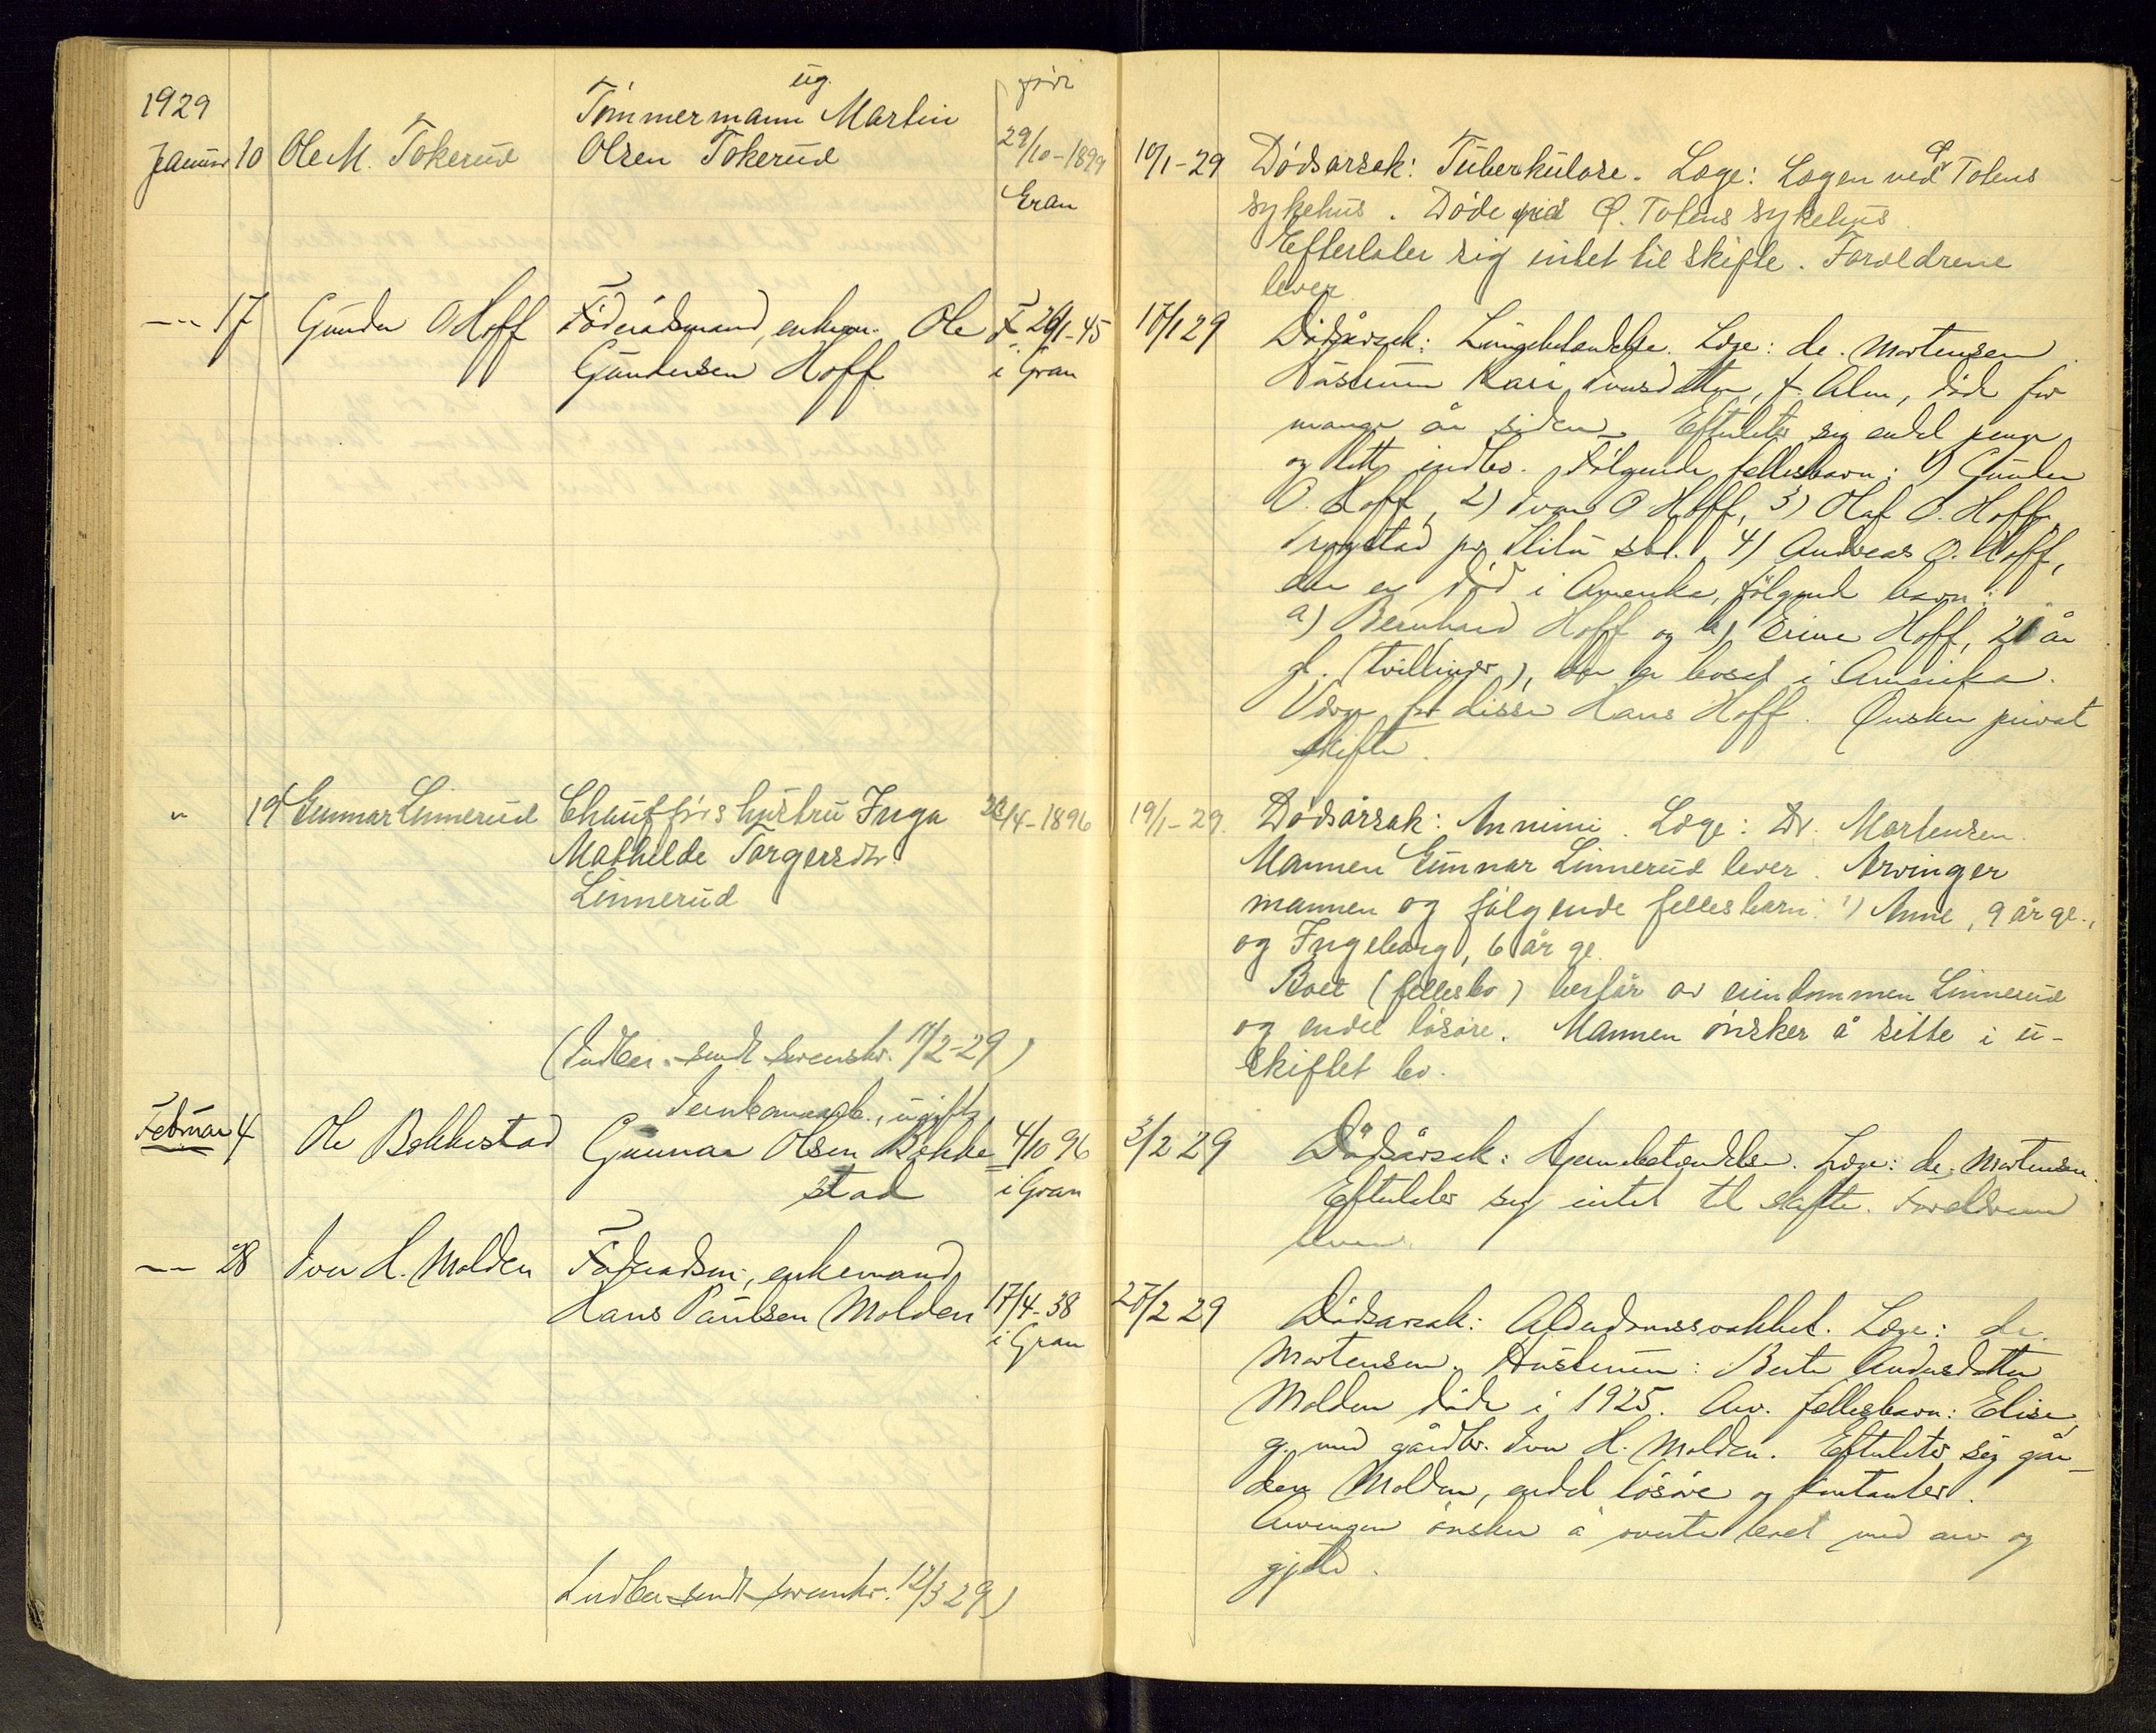 1929
ug.
Tømmermann Martin
Januar 10 Ole M. Tokerud Olsen Tokerud 29/10-1899
Gran
10/1-29 Dødsårsak: Tuberkulose. Læge: Lægen ved Ø. Totens
sykehus. Døde på Ø. Totens sykehus
Efterlater sig intet til skifte. Foreldrene
lever
--- 17 Gunder O Hoff Føderådsmand, enkem. Ole F. 29/1-45
Gundersen Hoff i Gran
17/1 29 Dødsårsak: Lungebetændelse. Læge: dr. Mortensen.
Hustruen Kari Iversdatter, f. Alm, død for
mange år siden. Efterlater sig endel penge
og litt indbo. Følgende fellesbarn: 1) Gunder
O. Hoff, 2) Iver O Hoff, 3) Olaf O. Hoff,
Trygstad pr. Slitu st., 4) Andreas O. Hoff,
der er død i Amerika, følgende barn:
a) Bernhard Hoff og b) Erine Hoff, 21 år
gl. (tvillinger), der er bosat i Amerika.
Verge for disse Hans Hoff. Ønsker privat
skifte.
" 19 Gunnar Linnerud Chaufførs hustru Inga 23/4-1896
Mathilde Torgersdtr.
Linnerud
19/1-29. Dødsårsak: Annimi. Læge: Dr. Mortensen.
Mannen Gunnar Linnerud lever. Arvinger
mannen og følgende fellesbarn: 1) Anne, 9 år gl.,
og Ingeborg, 6 år gl.
Boet (fellesbo) består av eiendommen Linnerud
og endel løsøre. Mannen ønsker å sitte i u-
skiftet bo.
(Indber. sendt sorenskr. 11/2-29)
Jernbanearb., ugift
Februar 4 Ole Bekkestad Gunnar Olsen Bekke 4/10 96
stad i Gran
3/2 29 Dødsårsak: Hjernebetændelse. Læge: dr. Mortensen.
Efterlater sig intet til skifte. Foreldrene
lever.
--- 28 Iver H. Molden Føderadsm., enkemand
Hans Paulsen Molden 17/4-38
i Gran
27/2 29 Dødsarsak: Alderdomssvakhet. Læge: dr.
Mortensen. Hustruen: Berte Andersdatter
Molden døde i 1925. Arv. fellesbarn: Elise,
g. med gårdbr. Iver H. Molden. Efterlater sig går-
den Molden, endel løsøre og kontanter.
Arvingen ønsker å overta boet med arv og
gjeld.
Indber sendt sorenskr. 12/3 29)